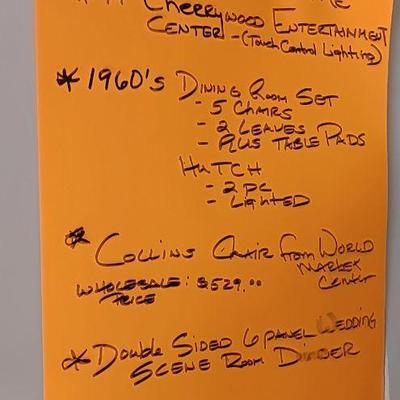 Cherrywood Entertainment
Center - (Touch Control Lighting)
* 1960's Dining Room Set
- 5 Chairs
- 2 Leaves
- Plus Table Pads
Hutch
- 2 pc
- Lighted
* Collins Chair from World
Market
Center
Wholesale: $529.00
Price
* Double Sided 6 panel Wedding
Scene Room Divider